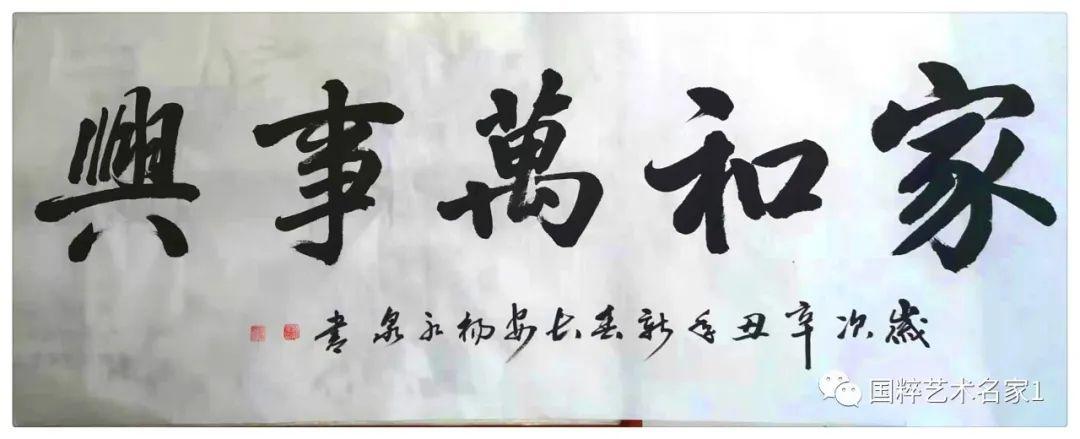 家和萬事興
歲次辛丑年新春長安楊永泉書
国粹艺术名家1